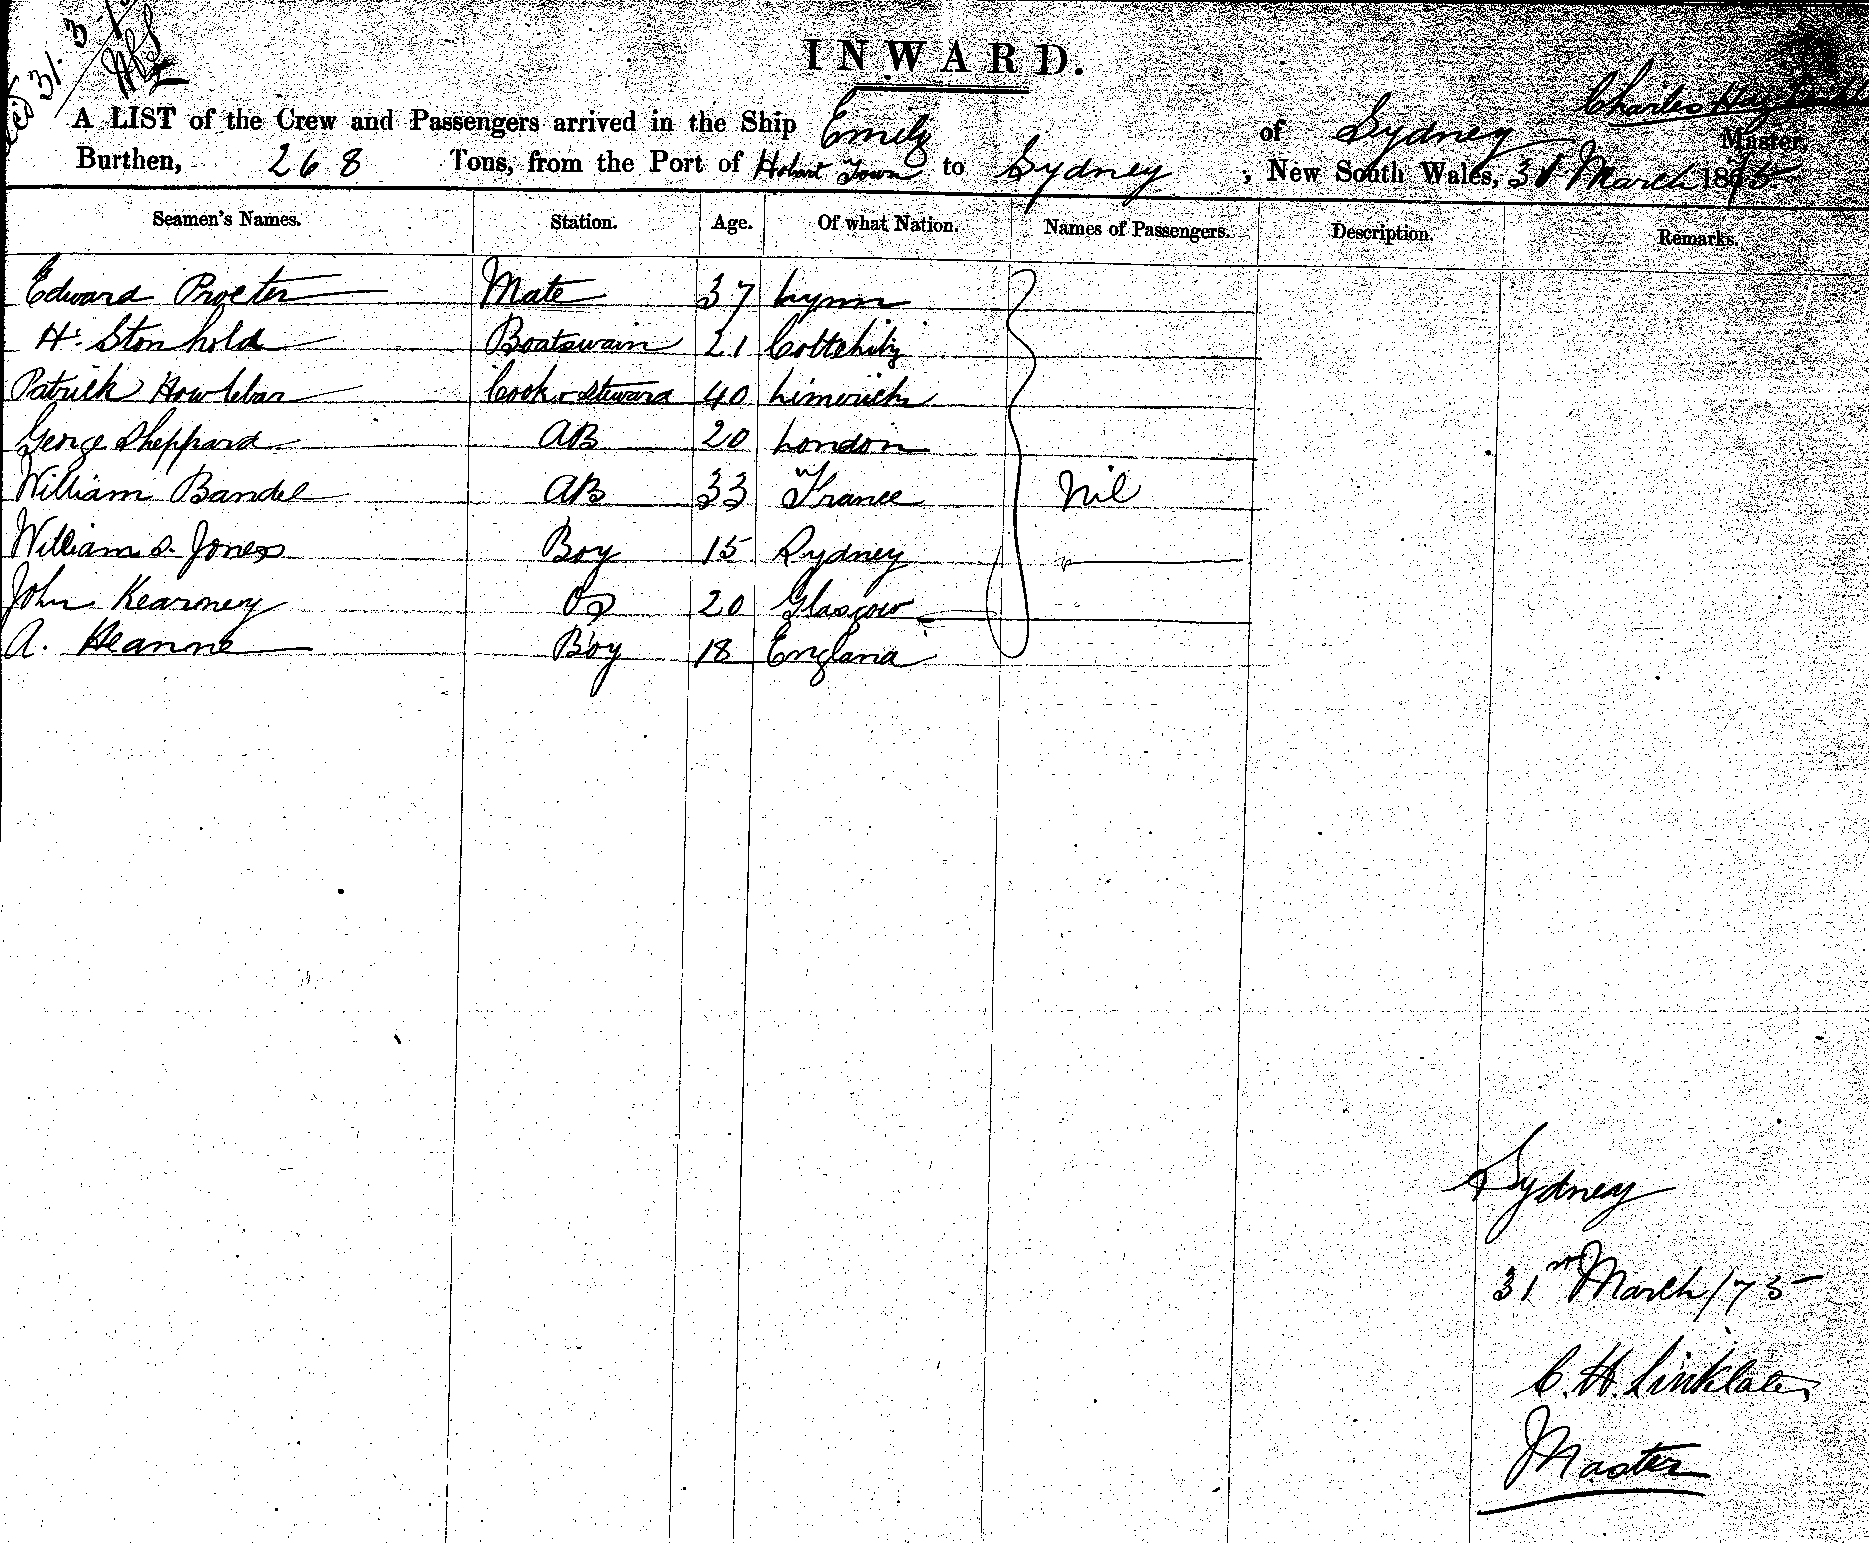 31. 3.
INWARD.
Charles Hay
A LIST of the Crew and Passengers arrived in the Ship Emily of Sydney Master,
Burthen, 268 Tons, from the Port of Hobart Town to Sydney, New South Wales, 31 March 1875
Seamen's Names. Station. Age. Of what Nation. Names of Passengers. Description. Remarks.
Edward Procter Mate 37 Lynn
H. Stonhold Boatswain 21
Patrick Cook & Steward 40 Limerick
George Sheppard AB 20 London
William Bandel AB 33 France Nil
William S. Jones Boy 15 Sydney "
John Kearney OS 20 Glasgow
A. Heanne Boy 18 England
Sydney
31st March/75
C. H. Linklater
Master